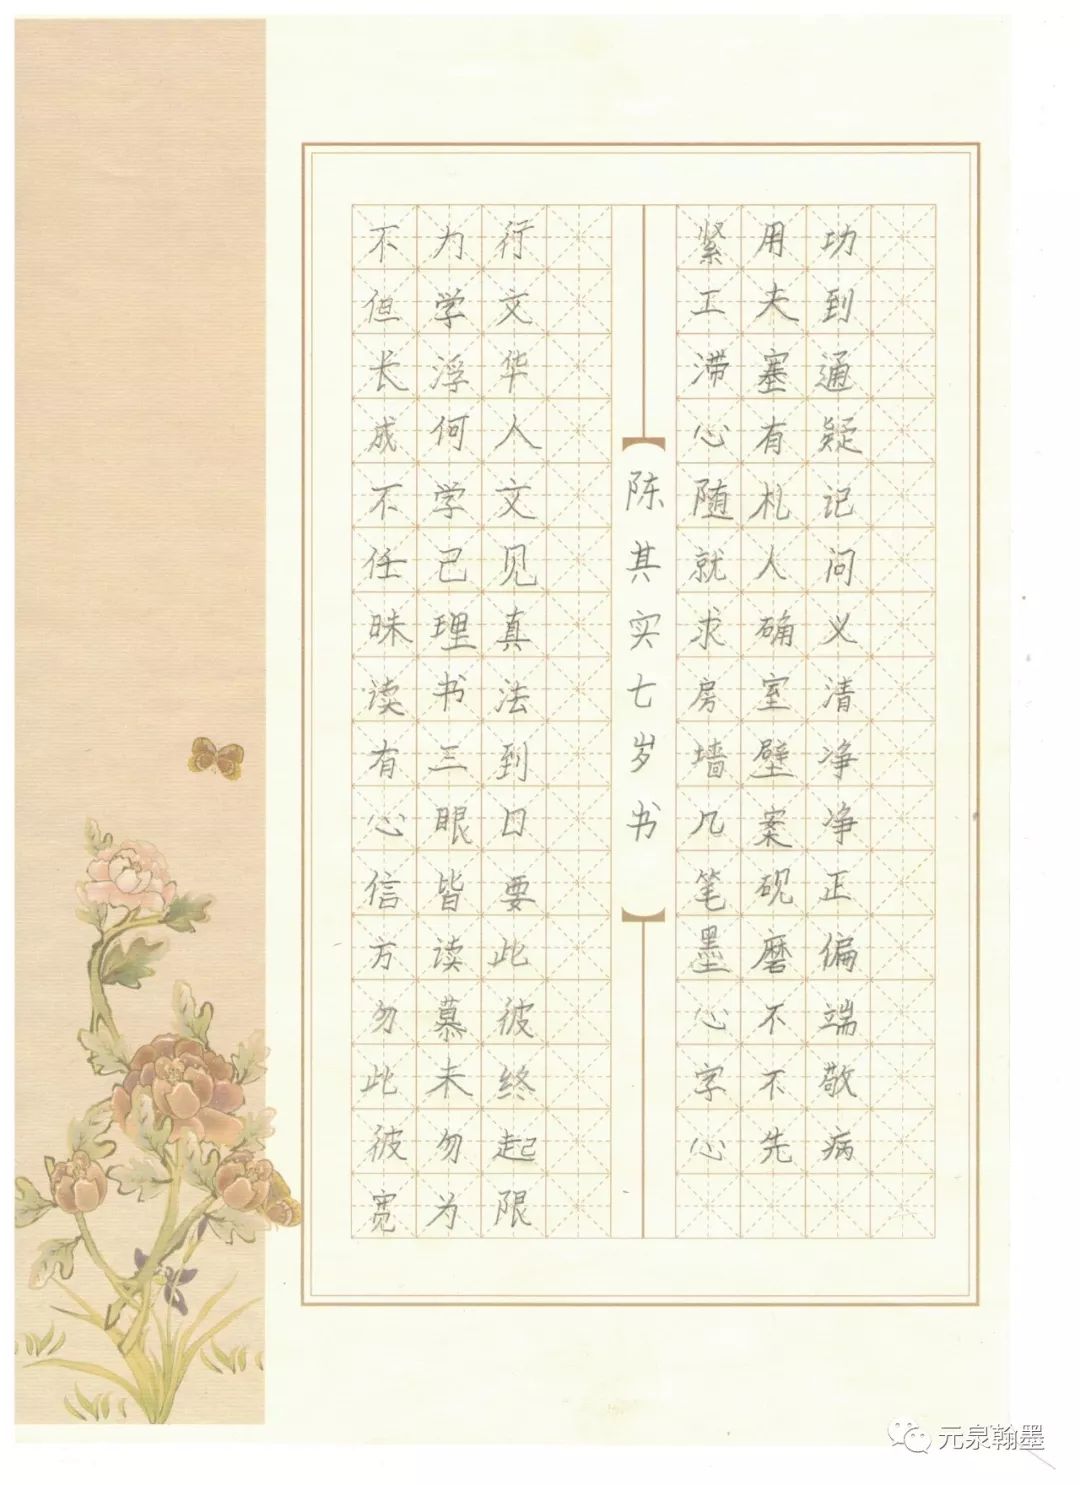 不为行
但学文
长浮华
成何人
不学文
任己见
昧理真
读书法
有三到
心眼口
信皆要
方读此
勿慕彼
此未终
彼勿起
宽为限
陈其实七岁书
紧用功
工夫到
滞塞通
心有疑
随札记
就人问
求确义
房室清
墙壁净
几案净
笔砚正
墨磨偏
心不端
字不敬
心先病
元泉翰墨